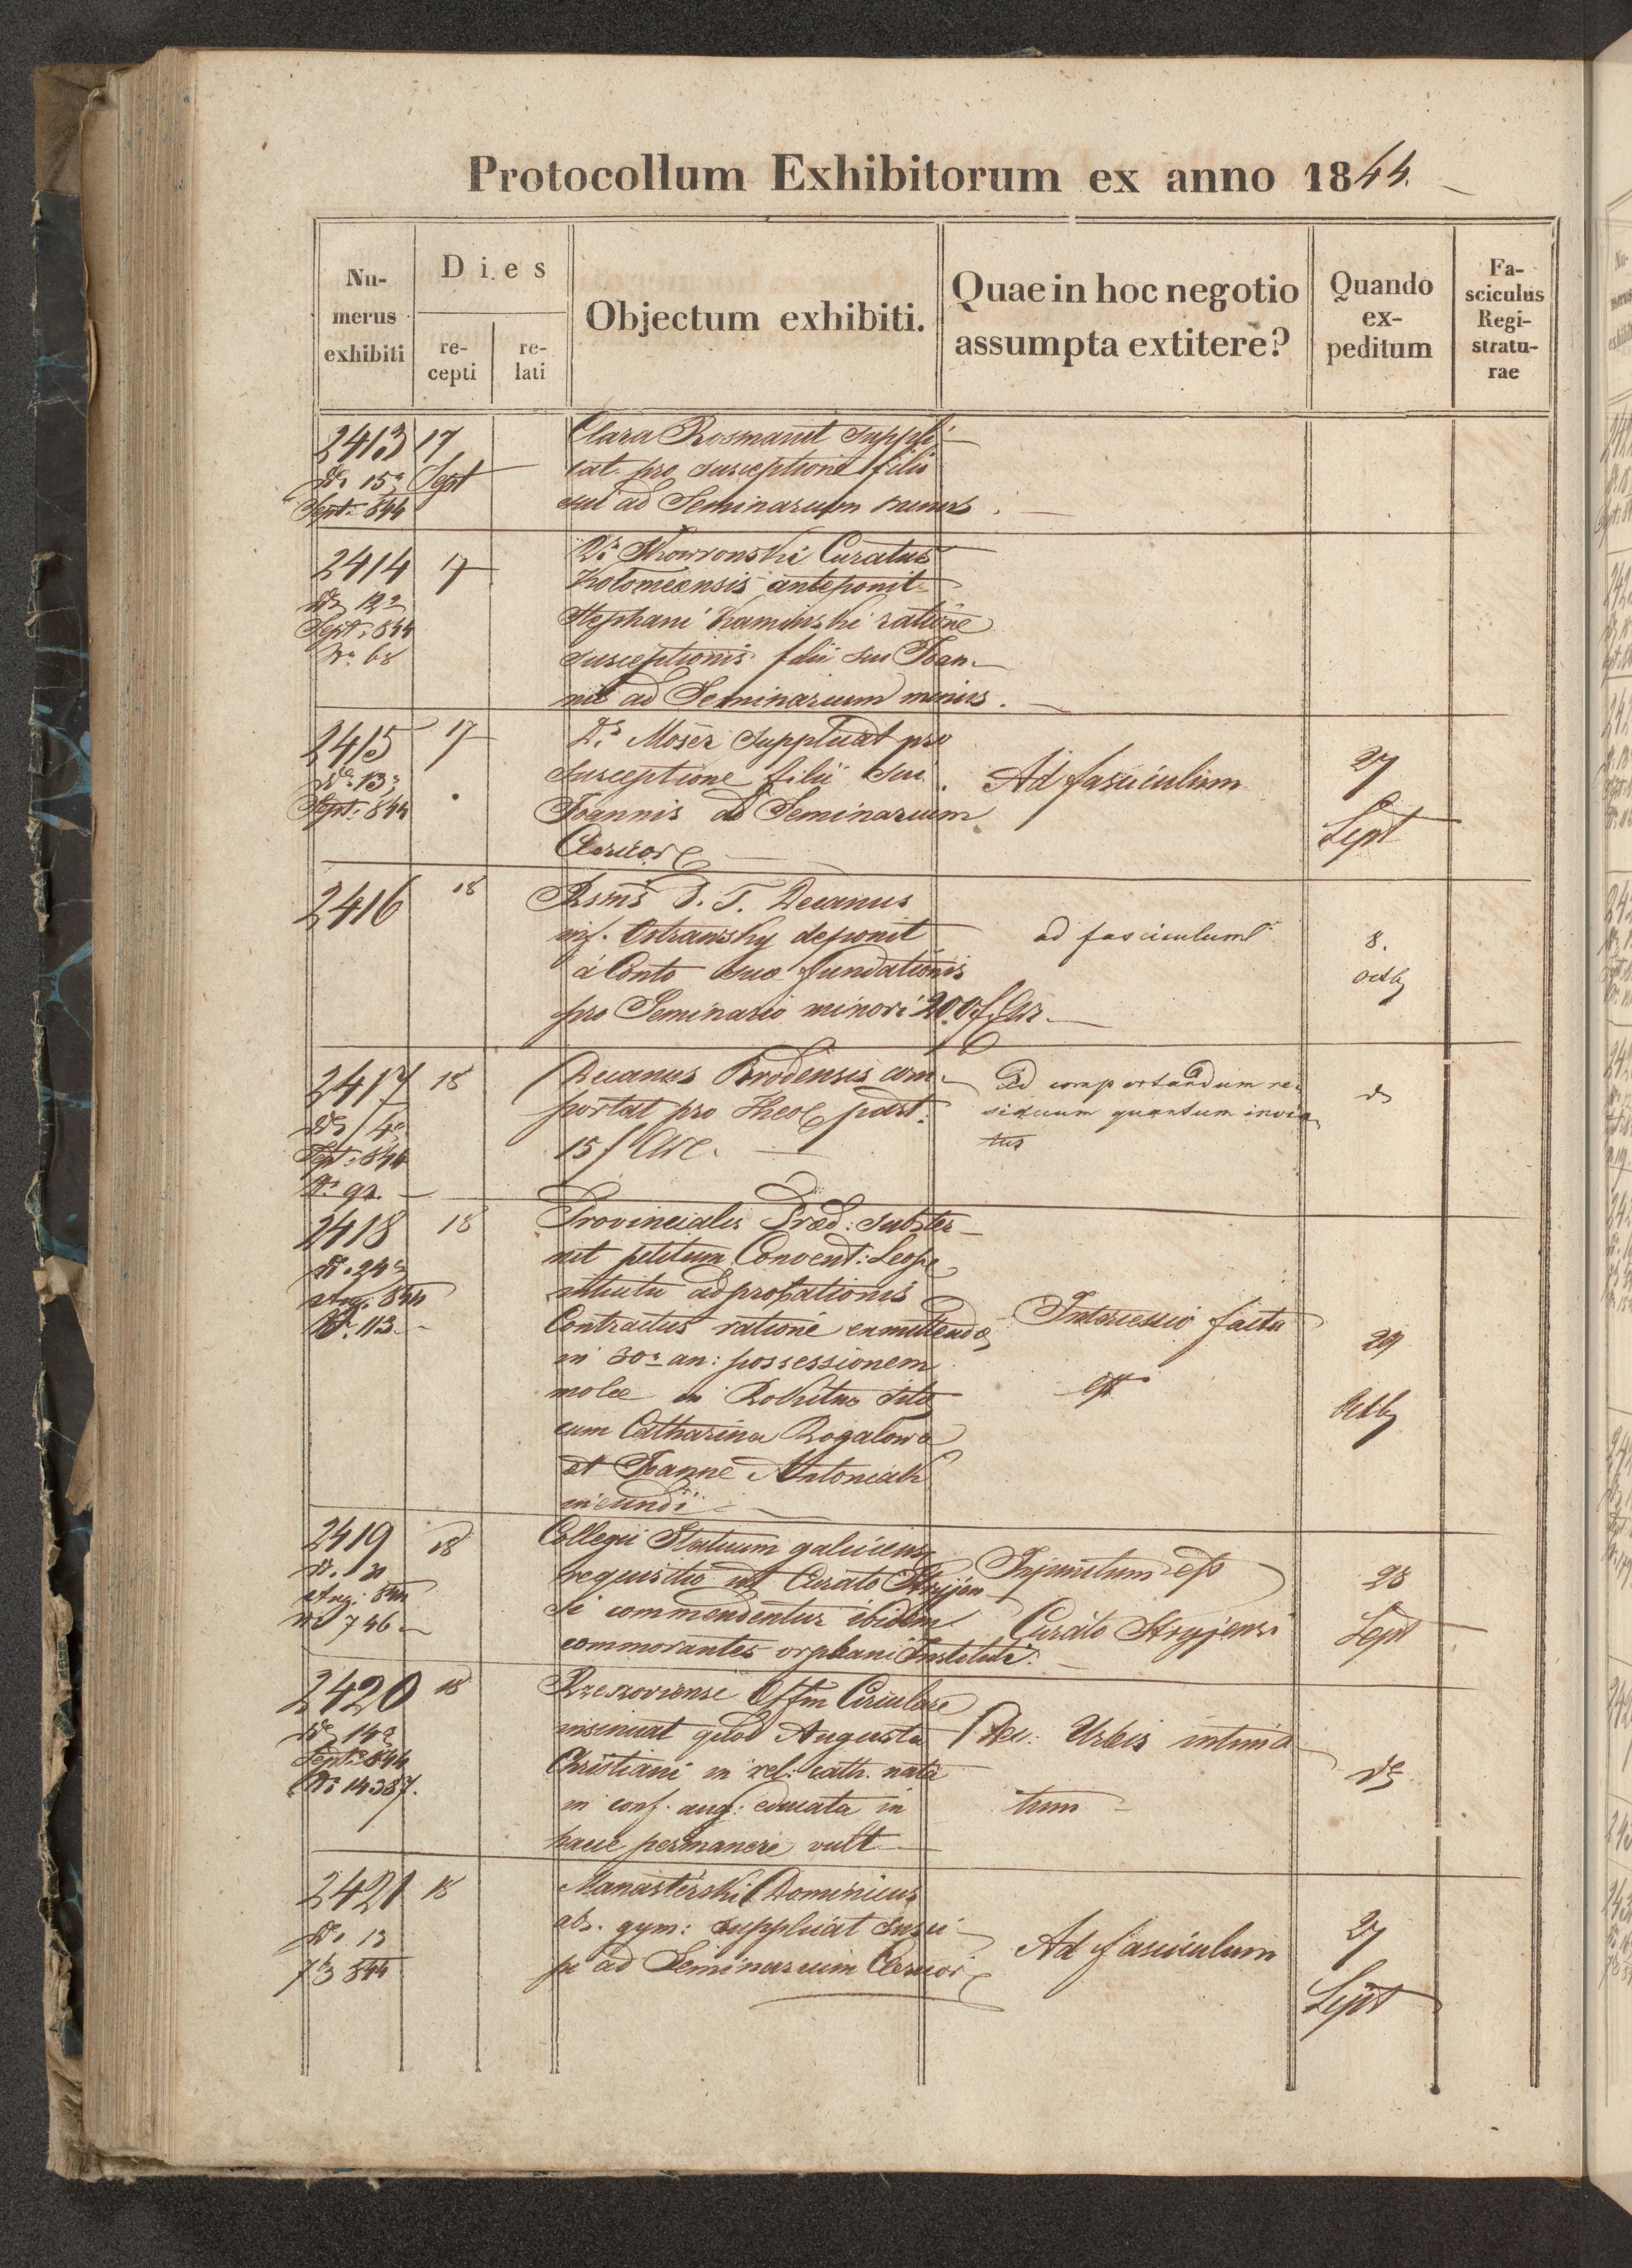 Protocollum Exhibitorum ex anno 1844.
Nu-
merus
exhibiti
Dies
re-
cepti
re-
lati
Objectum exhibiti.
Quae in hoc negotio
assumpta extitere?
Quando
ex-
peditum
Fa-
sciculus
Regi-
stratu-
rae
2413 17
15 Sept
Sept: 844
Clara Rosmarit suppli-
cat pro susceptione filii
sui ad Seminarium minus.
2414 17
12
Sept: 844
Nr. 68
Dr. Skowronski Curatus
Kolomeensis anteponit
Stephani Kaminski ratione
susceptionis filii sui Joan-
nis ad Seminarium minus.
2415 17
13
Sept: 844
Dr. Moser supplicat pro
susceptione filii sui
Joannis ad Seminarium
Clericor
Ad fasciculum
27
Sept
2416 18
Rsms D. T. Decanus
inf. Ostrawsky deponit
á Conto suae fundationis
pro Seminario minori 200 f
ad fasciculum
8.
Octb
2417 18
4
Sept: 844
Nr 92
Decanus Brodensis com-
portat pro Theol past:
15 f
Ad comportandum re-
siduum quantum invita-
tus
2418 18
24
Aug. 844
Nr. 113
Provincialis Praed: subster-
nit petitum Convent: Leop
intuitu adprobationis
Contractus ratione emittendae
in 30 an: possessionem
molae in Rokitno sitae
cum Catharina Rogalowa
et Joanne Antoniak
ineundi
Intercessio facta
est
29
Octb
2419 18
Aug: 844
Nr 746
Collegii Statuum galiciens
requisitio ut Curato Stryjen-
si commendentur ibidem
commorantes orphani Instituti.
Injunctum est
Curato Stryjensi
28
Sept
2420 18
14
Sept: 844
Nr. 14387.
Rzezoviense Offm Circulare
insinuat quod Augusta
Christiani in rel: cath. nata
in conf. aug: educata in
hacce permanere vult
Dec: Urbis intima-
tum
2421 18
13
7b 844
Manasterski Dominicus
abs. gym: supplicat susci-
pi ad Seminarium Clericor
Ad fasciculum
27
Sept